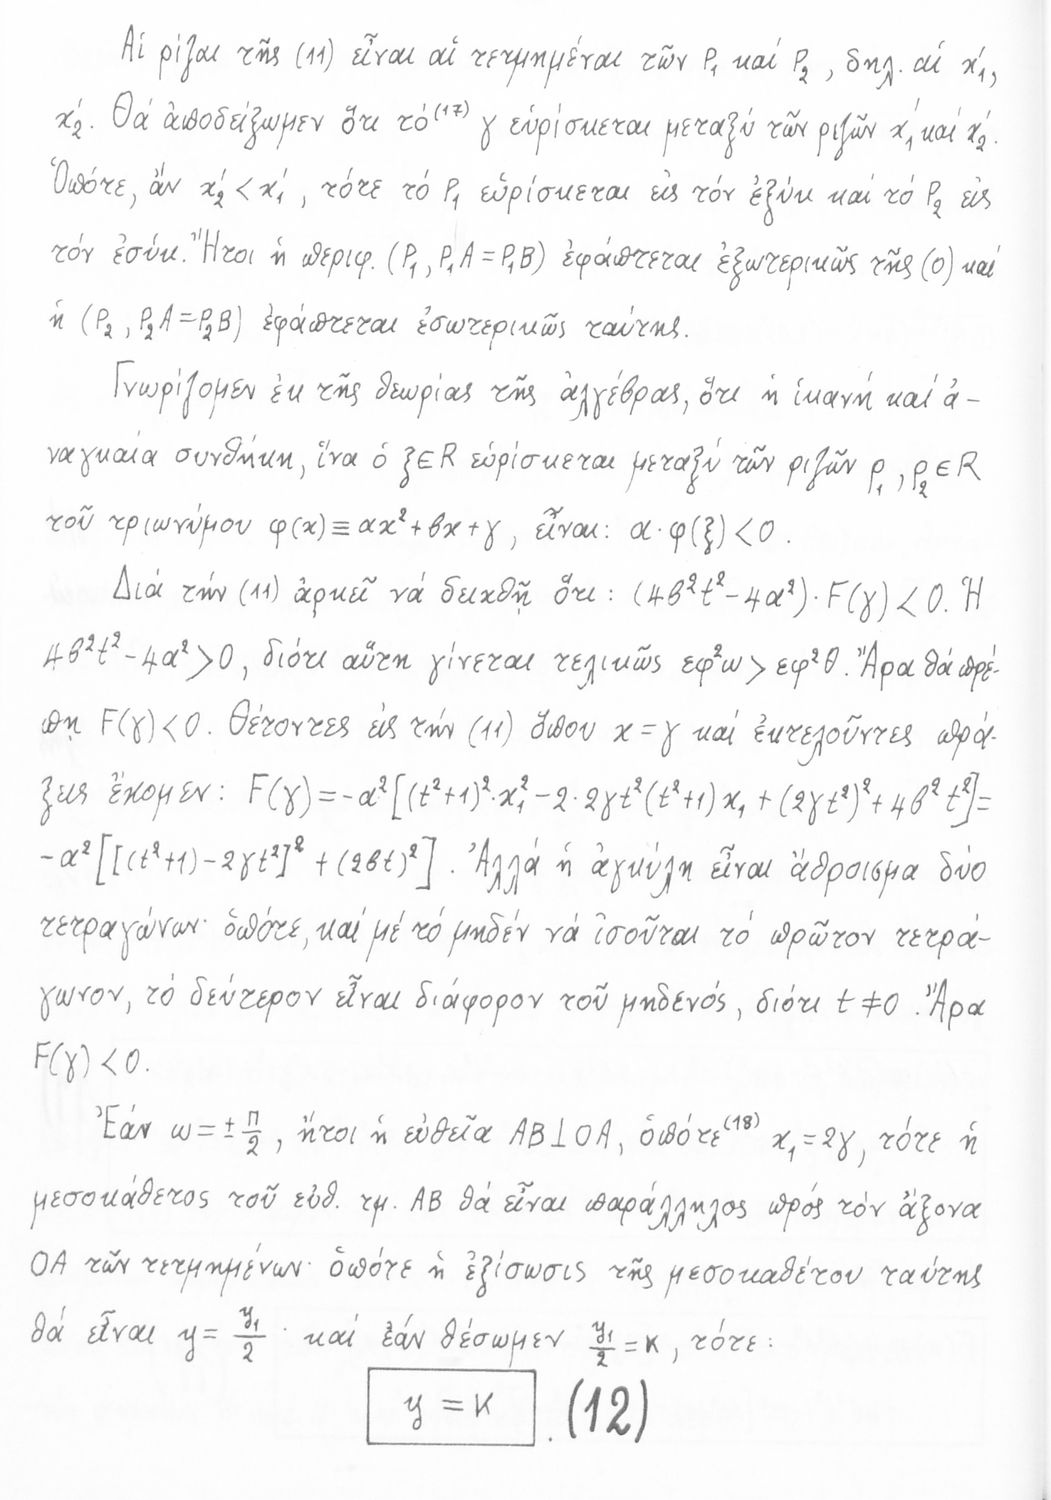 Αἱ ρίζαι τῆς (11) εἶναι αἱ τετμημέναι τῶν P₁ καί P₂, δηλ. αἱ x₁′,
x₂′. Θά ἀποδείξωμεν ὅτι τό⁽¹⁷⁾ γ εὑρίσκεται μεταξύ τῶν ριζῶν x₁′ καί x₂′.
Ὁπότε, ἄν x₂′ < x₁′, τότε τό P₁ εὑρίσκεται εἰς τόν ἐξύκ καί τό P₂ εἰς
τόν ἐσύκ. Ἤτοι ἡ περιφ. (P₁, P₁A = P₁B) ἐφάπτεται ἐξωτερικῶς τῆς (O) καί
ἡ (P₂, P₂A = P₂B) ἐφάπτεται ἐσωτερικῶς ταύτης.
Γνωρίζομεν ἐκ τῆς θεωρίας τῆς ἀλγέβρας, ὅτι ἡ ἱκανή καί ἀ-
ναγκαία συνθήκη, ἵνα ὁ ξ∈R εὑρίσκεται μεταξύ τῶν ριζῶν ρ₁, ρ₂∈R
τοῦ τριωνύμου φ(x) ≡ αx² + βx + γ, εἶναι: α·φ(ξ) < 0.
Διά τήν (11) ἀρκεῖ νά δειχθῇ ὅτι: (4β²t² - 4α²)·F(γ) < 0. Ἡ
4β²t² - 4α² > 0, διότι αὕτη γίνεται τελικῶς εφ²ω > εφ²θ. Ἄρα θά πρέ-
πῃ F(γ) < 0. Θέτοντες εἰς τήν (11) ὅπου x = γ καί ἐκτελοῦντες πρά-
ξεις ἔχομεν: F(γ) = -α²[(t²+1)²·x₁² - 2·2γt²(t²+1)x₁ + (2γt²)² + 4β²t²] =
-α²[[(t²+1) - 2γt²]² + (2βt)²]. Ἀλλά ἡ ἀγκύλη εἶναι ἄθροισμα δύο
τετραγώνων· ὁπότε, καί μέ τό μηδέν νά ἰσοῦται τό πρῶτον τετρά-
γωνον, τό δεύτερον εἶναι διάφορον τοῦ μηδενός, διότι t ≠ 0. Ἄρα
F(γ) < 0.
Ἐάν ω = ± π/2, ἤτοι ἡ εὐθεῖα AB ⊥ OA, ὁπότε⁽¹⁸⁾ x₁ = 2γ, τότε ἡ
μεσοκάθετος τοῦ εὐθ. τμ. AB θά εἶναι παράλληλος πρός τόν ἄξονα
OA τῶν τετμημένων· ὁπότε ἡ ἐξίσωσις τῆς μεσοκαθέτου ταύτης
θά εἶναι y = y₁/2 · καί ἐάν θέσωμεν y₁/2 = κ, τότε:
y = κ . (12)